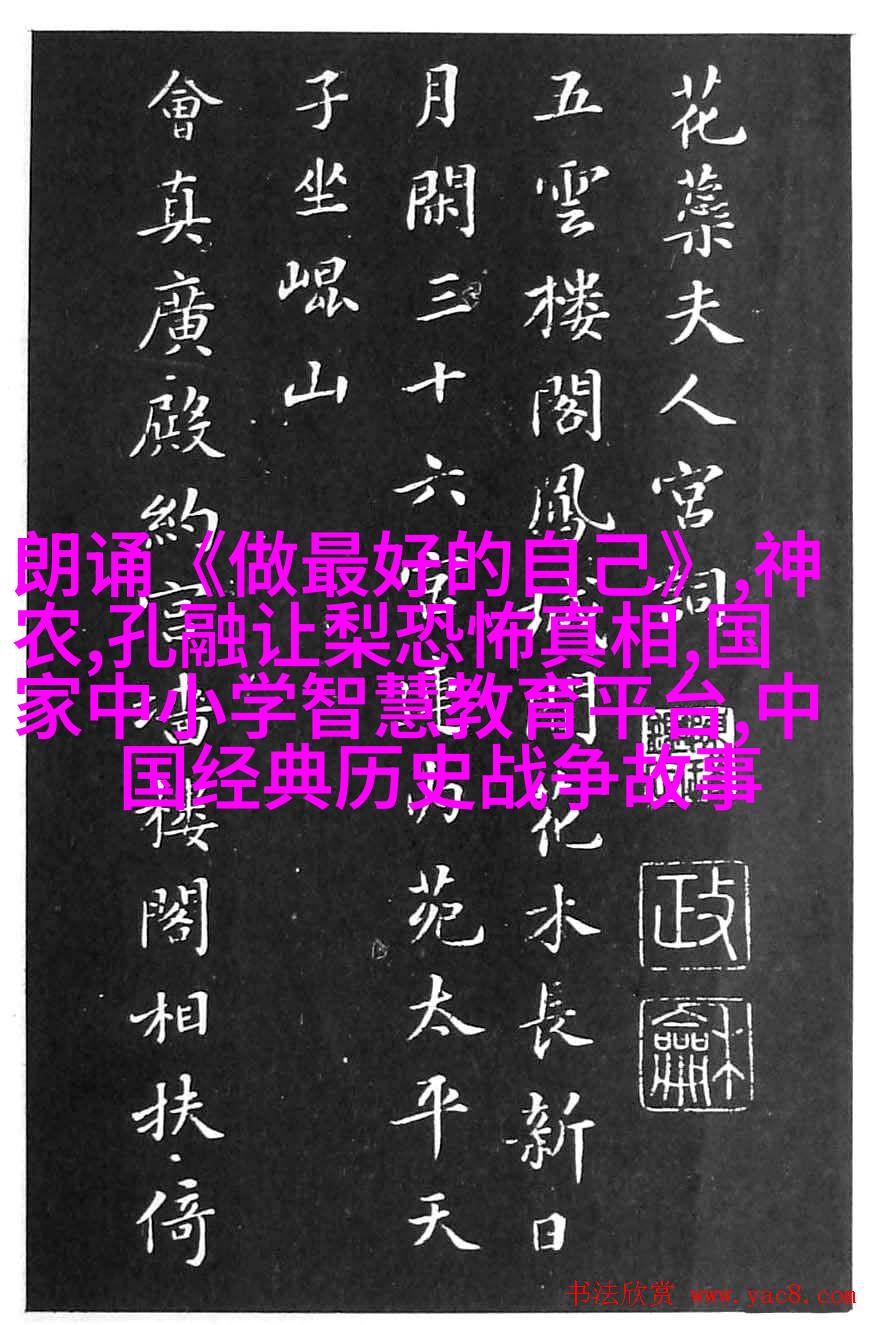 花蘂夫人宮詞
五雲樓閣鳳城間花木長新日
月閑三十六宮連內苑太平天
子坐崐山
會真廣殿約宮墻樓閣相扶倚
政
龢
朗诵《做最好的自己》,神
农,孔融让梨恐怖真相,国
家中小学智慧教育平台,中
国经典历史战争故事
书法欣赏 www.yac8.com